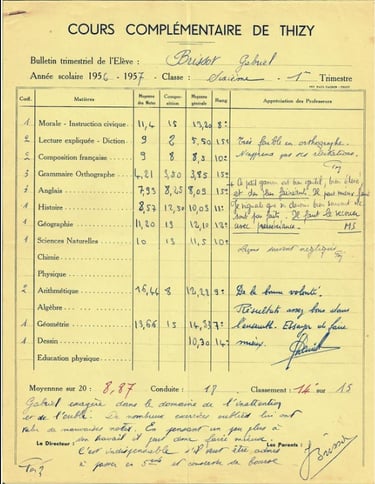 COURS COMPLÉMENTAIRE DE THIZY
Bulletin trimestriel de l'Elève : Brissot Gabriel
Année scolaire 1956 - 1957 - Classe : Sixième - 1er Trimestre
Coef. Matières Moyenne des Notes Composition Moyenne générale Rang Appréciation des Professeurs
1 Morale - Instruction civique 11,4 15 13,20 8e
2 Lecture expliquée - Diction 9 2 5,50 15e Très faible en orthographe.
2 Composition française 9 8 8,5 10e N'apprend pas ses récitations.
3 Grammaire Orthographe 4,21 3,50 3,85 15e
3 Anglais 7,93 8,25 8,09 15e Le petit gamin est bien gentil, bien élevé
1 Histoire 8,57 10,03 11e
1 Géographie 11,20 13 12,10 12e avec persévérance. MS
1 Sciences Naturelles 10 13 11,5 10e Leçons souvent négligées.
Chimie
Physique
2 Arithmétique 16,46 8 12,23 9e De la bonne volonté.
Algèbre Résultats assez bons dans
1 Géométrie 13,66 15 14,33 7e l'ensemble. Essayer de faire
1 Dessin 10,30 14e mieux.
Education physique
Moyenne sur 20 : 8,87 Conduite : 18 Classement : 14e sur 15
Gabriel exagère dans le domaine de l'inattention
et de l'oubli. De nombreux exercices oubliés lui ont
valu de mauvaises notes. En pensant un peu plus à
son travail il peut donc faire mieux.
Le Directeur : C'est indispensable s'il veut être admis Les Parents :
à passer en 5ème et concours de bourse
Brissot